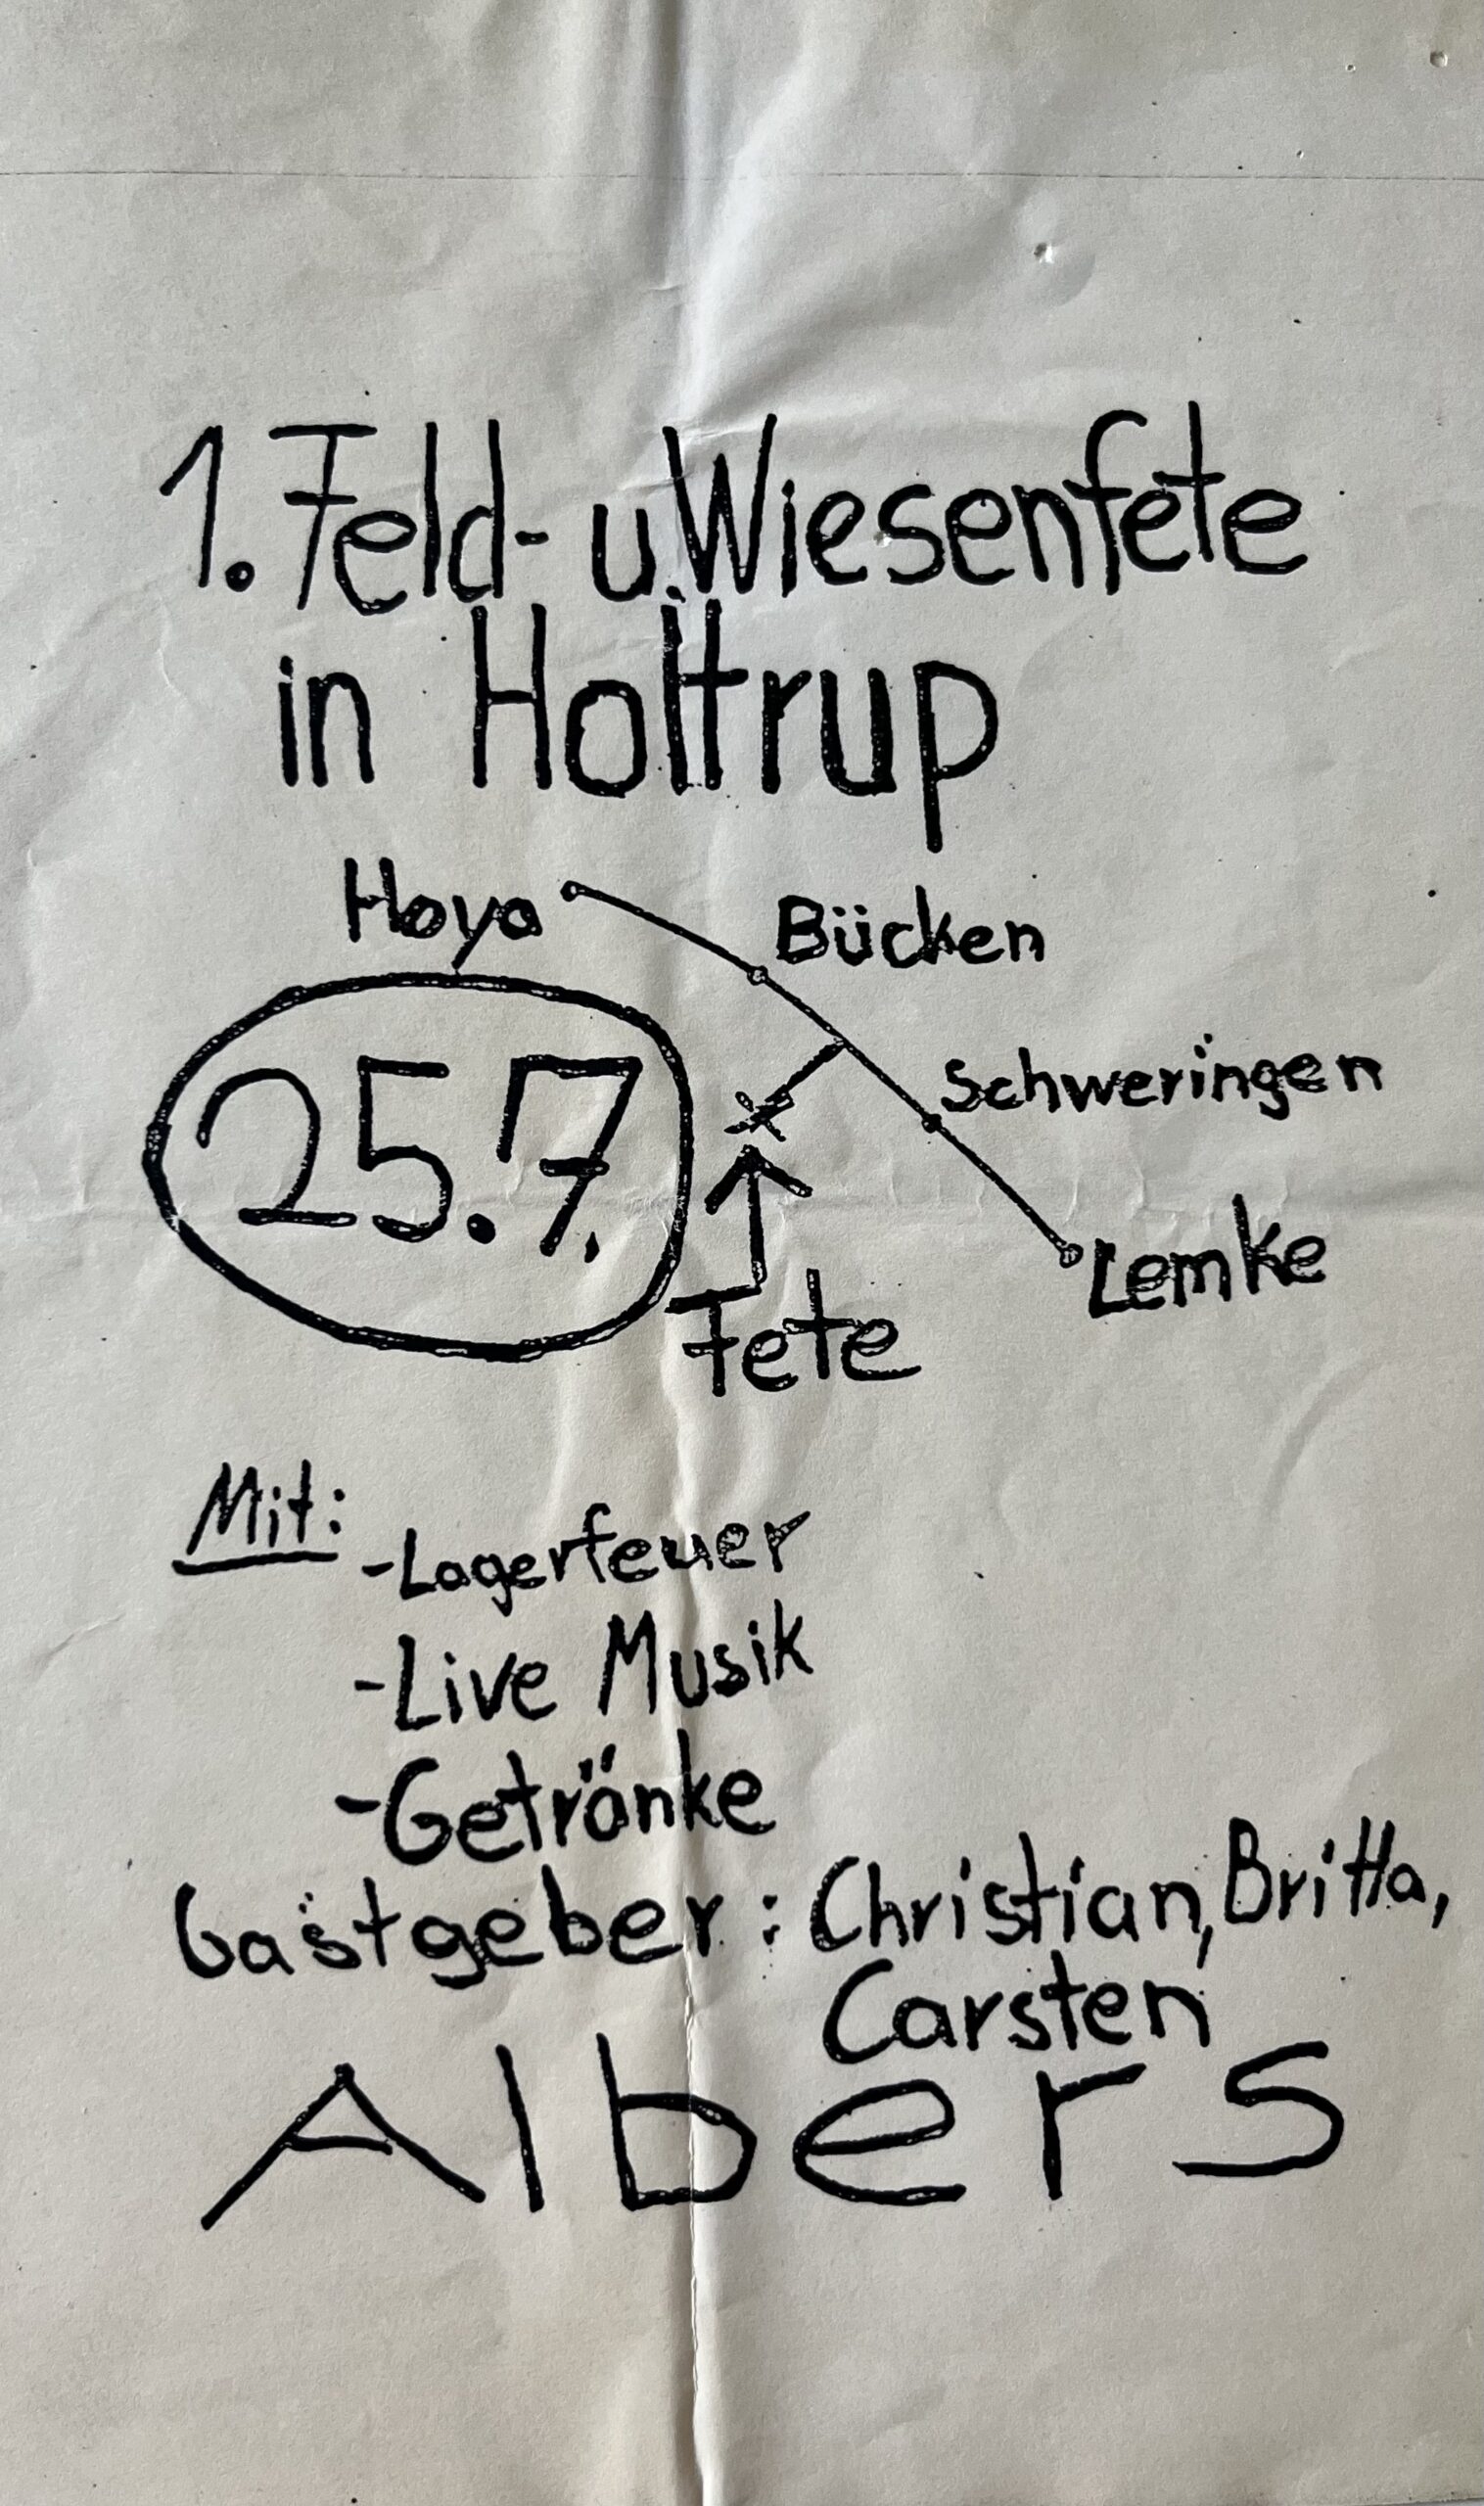 1. Feld- u. Wiesenfete
in Holtrup
Hoya
Bücken
25.7.
Schweringen
Lemke
Fete
Mit:
-Lagerfeuer
-Live Musik
-Getränke
Gastgeber: Christian, Britta,
Carsten
Albers